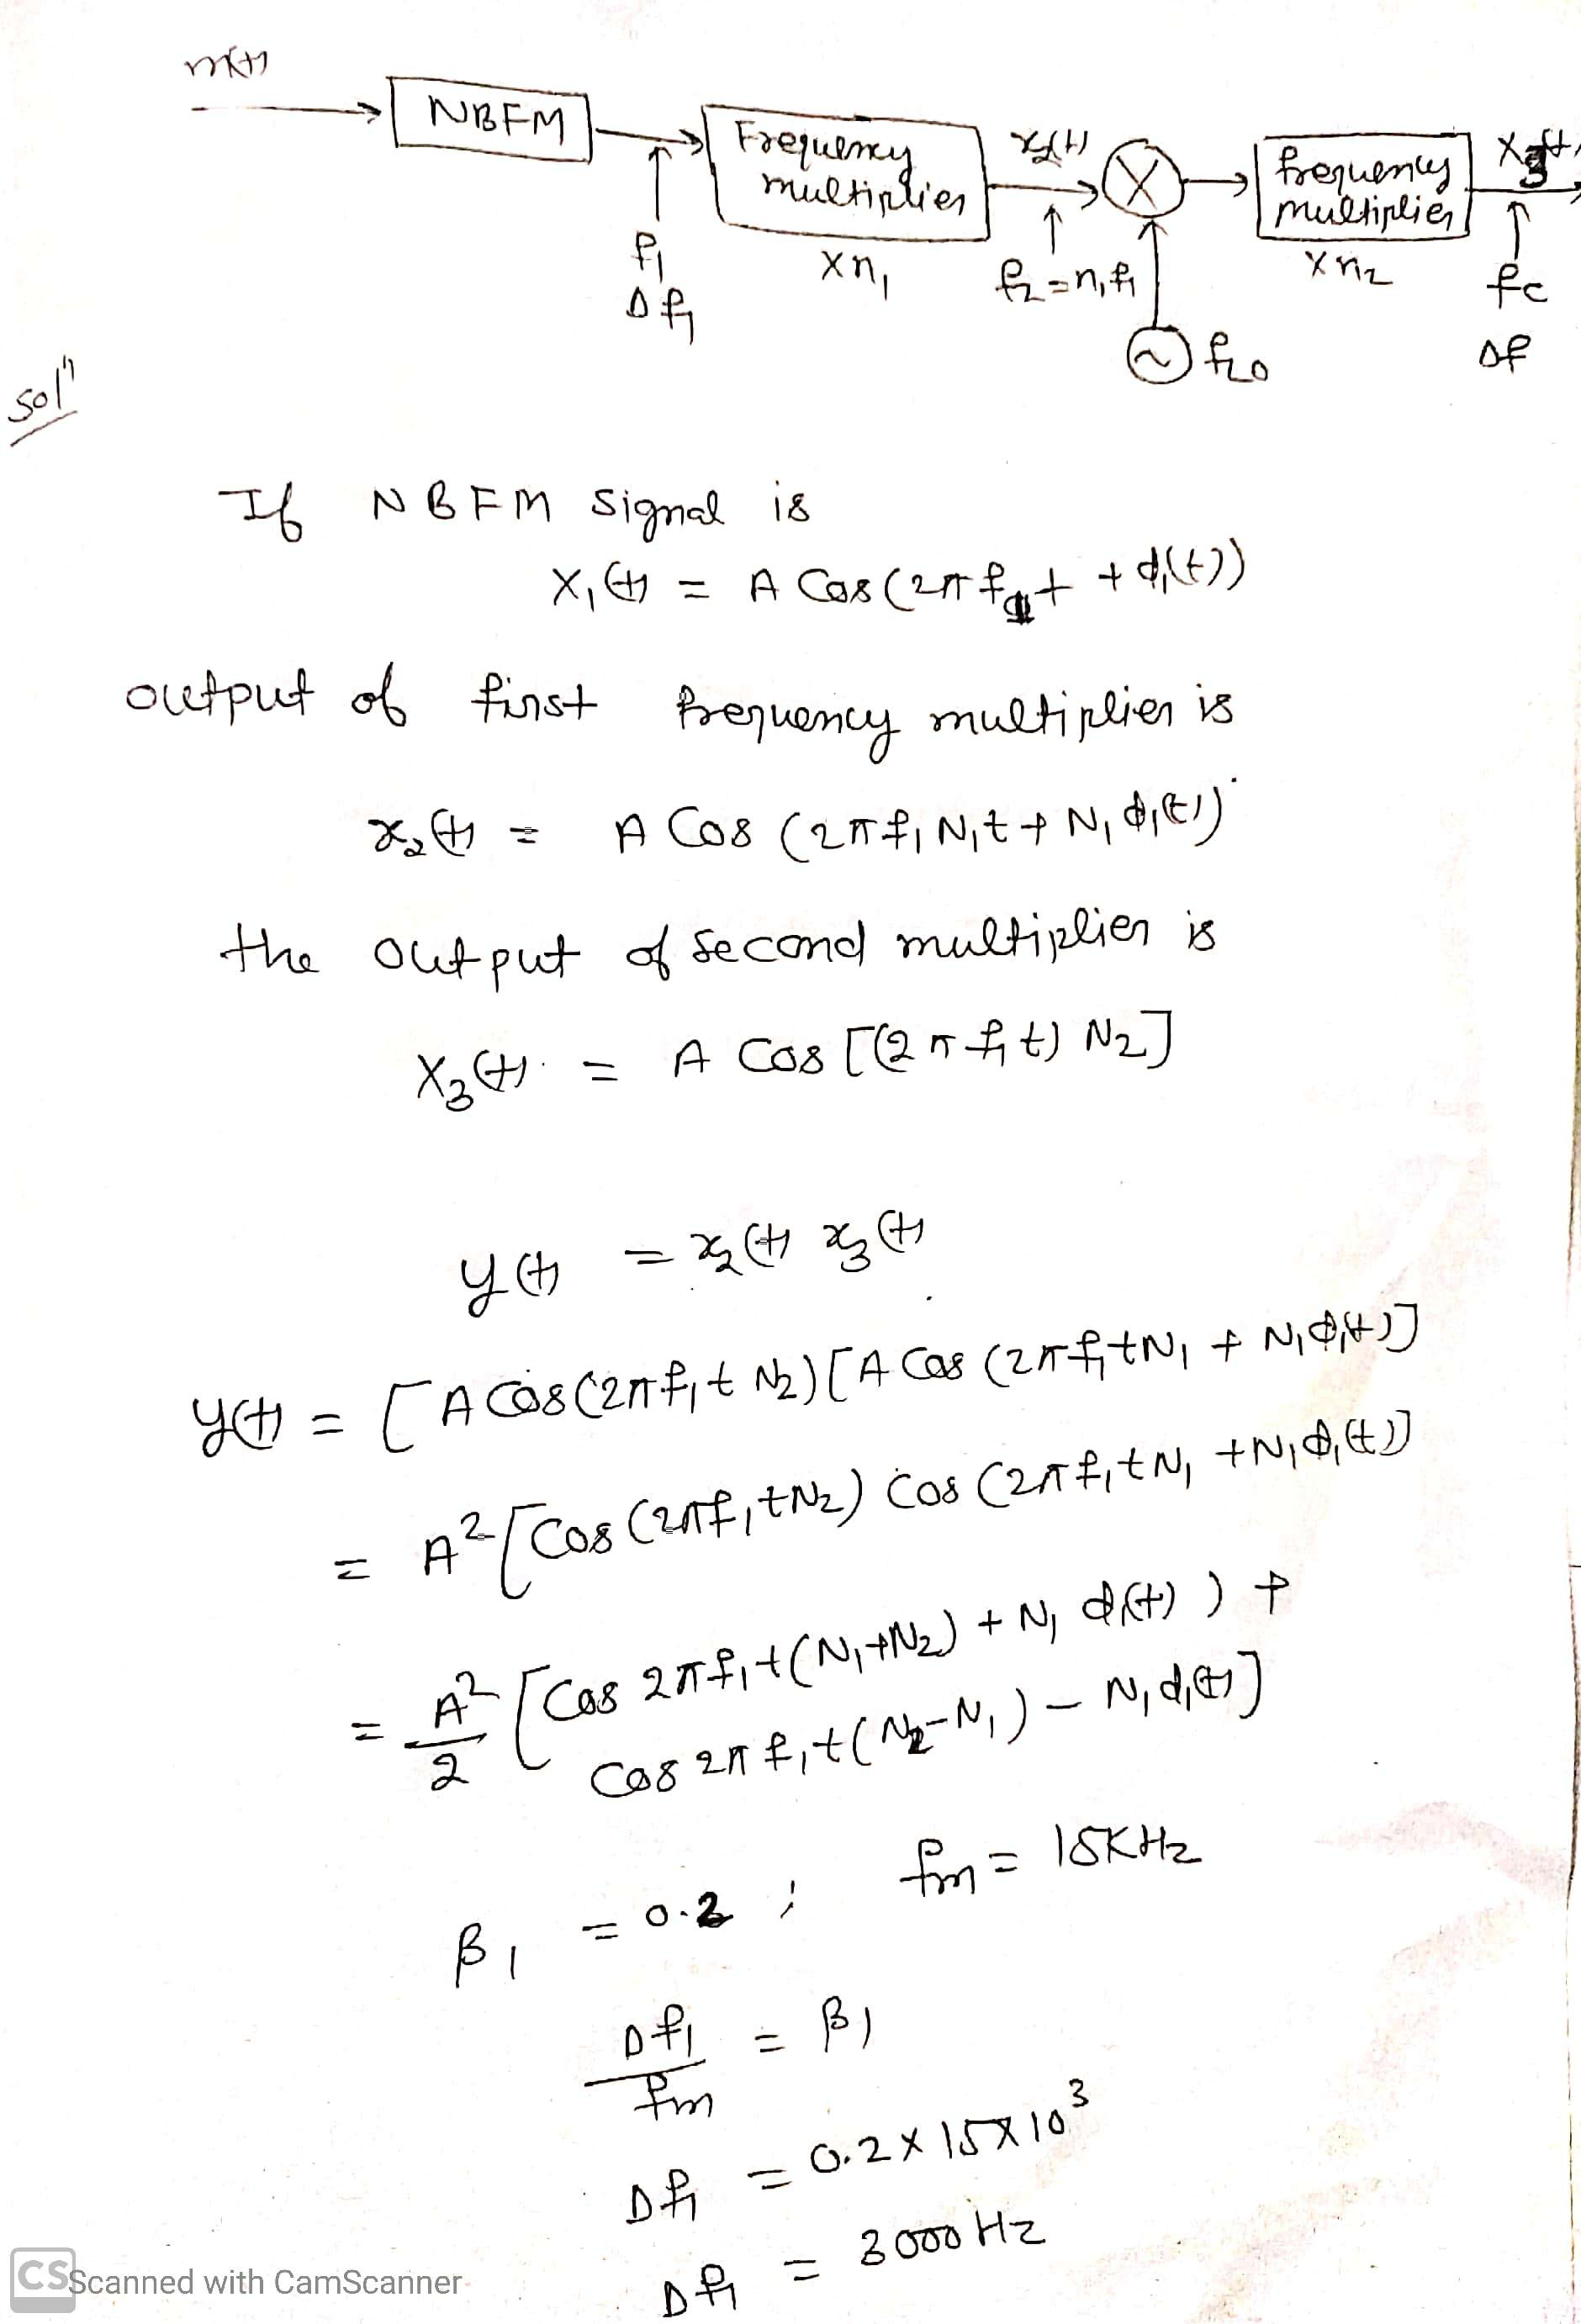 m(t)
NBFM
Frequency
multiplier
x₂(t)
frequency
multiplier
X₃(t)
f₁
Δf₁
Xn₁
f₂=n₁f₁
Xn₂
fc
Δf
~ fLO
solⁿ
If NBFM signal is
X₁(t) = A Cos(2πf₁t + ϕ₁(t))
output of first frequency multiplier is
x₂(t) = A Cos (2πf₁N₁t + N₁ϕ₁(t))
the output of second multiplier is
X₃(t) = A Cos [(2πf₁t) N₂]
y(t) = x₂(t) x₃(t)
y(t) = [A Cos(2πf₁t N₂)[A Cos (2πf₁tN₁ + N₁ϕ₁(t)]
= A²[Cos(2πf₁tN₂) Cos (2πf₁tN₁ +N₁ϕ₁(t)]
= A²/2 [Cos 2πf₁t(N₁+N₂) + N₁ ϕ₁(t) ) +
Cos 2πf₁t(N₂-N₁) - N₁ϕ₁(t)]
β₁ = 0.2 ; fm = 15KHz
Δf₁/fm = β₁
Δf₁ = 0.2 X 15X10³
Δf₁ = 3000 Hz
CS Scanned with CamScanner